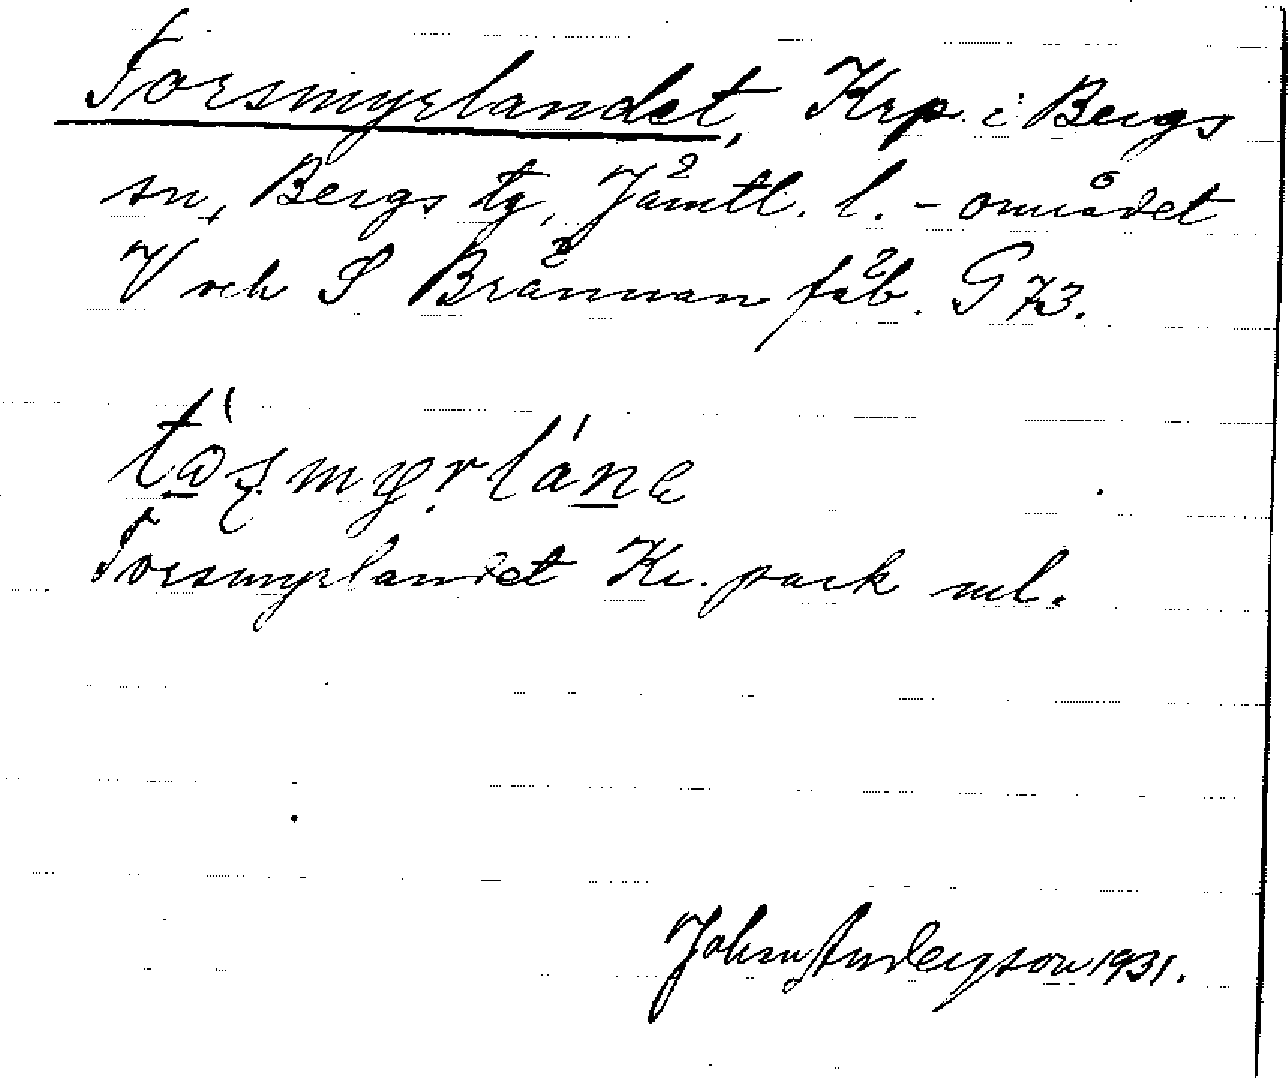 Torsmyrlandet, Krp i Bergs
sn, Bergs tg, Jämtl. l. - området
V och S Brännan fäb. G 73.
Torsmyrlandet Kr. park ml.
John Andersson 1931.